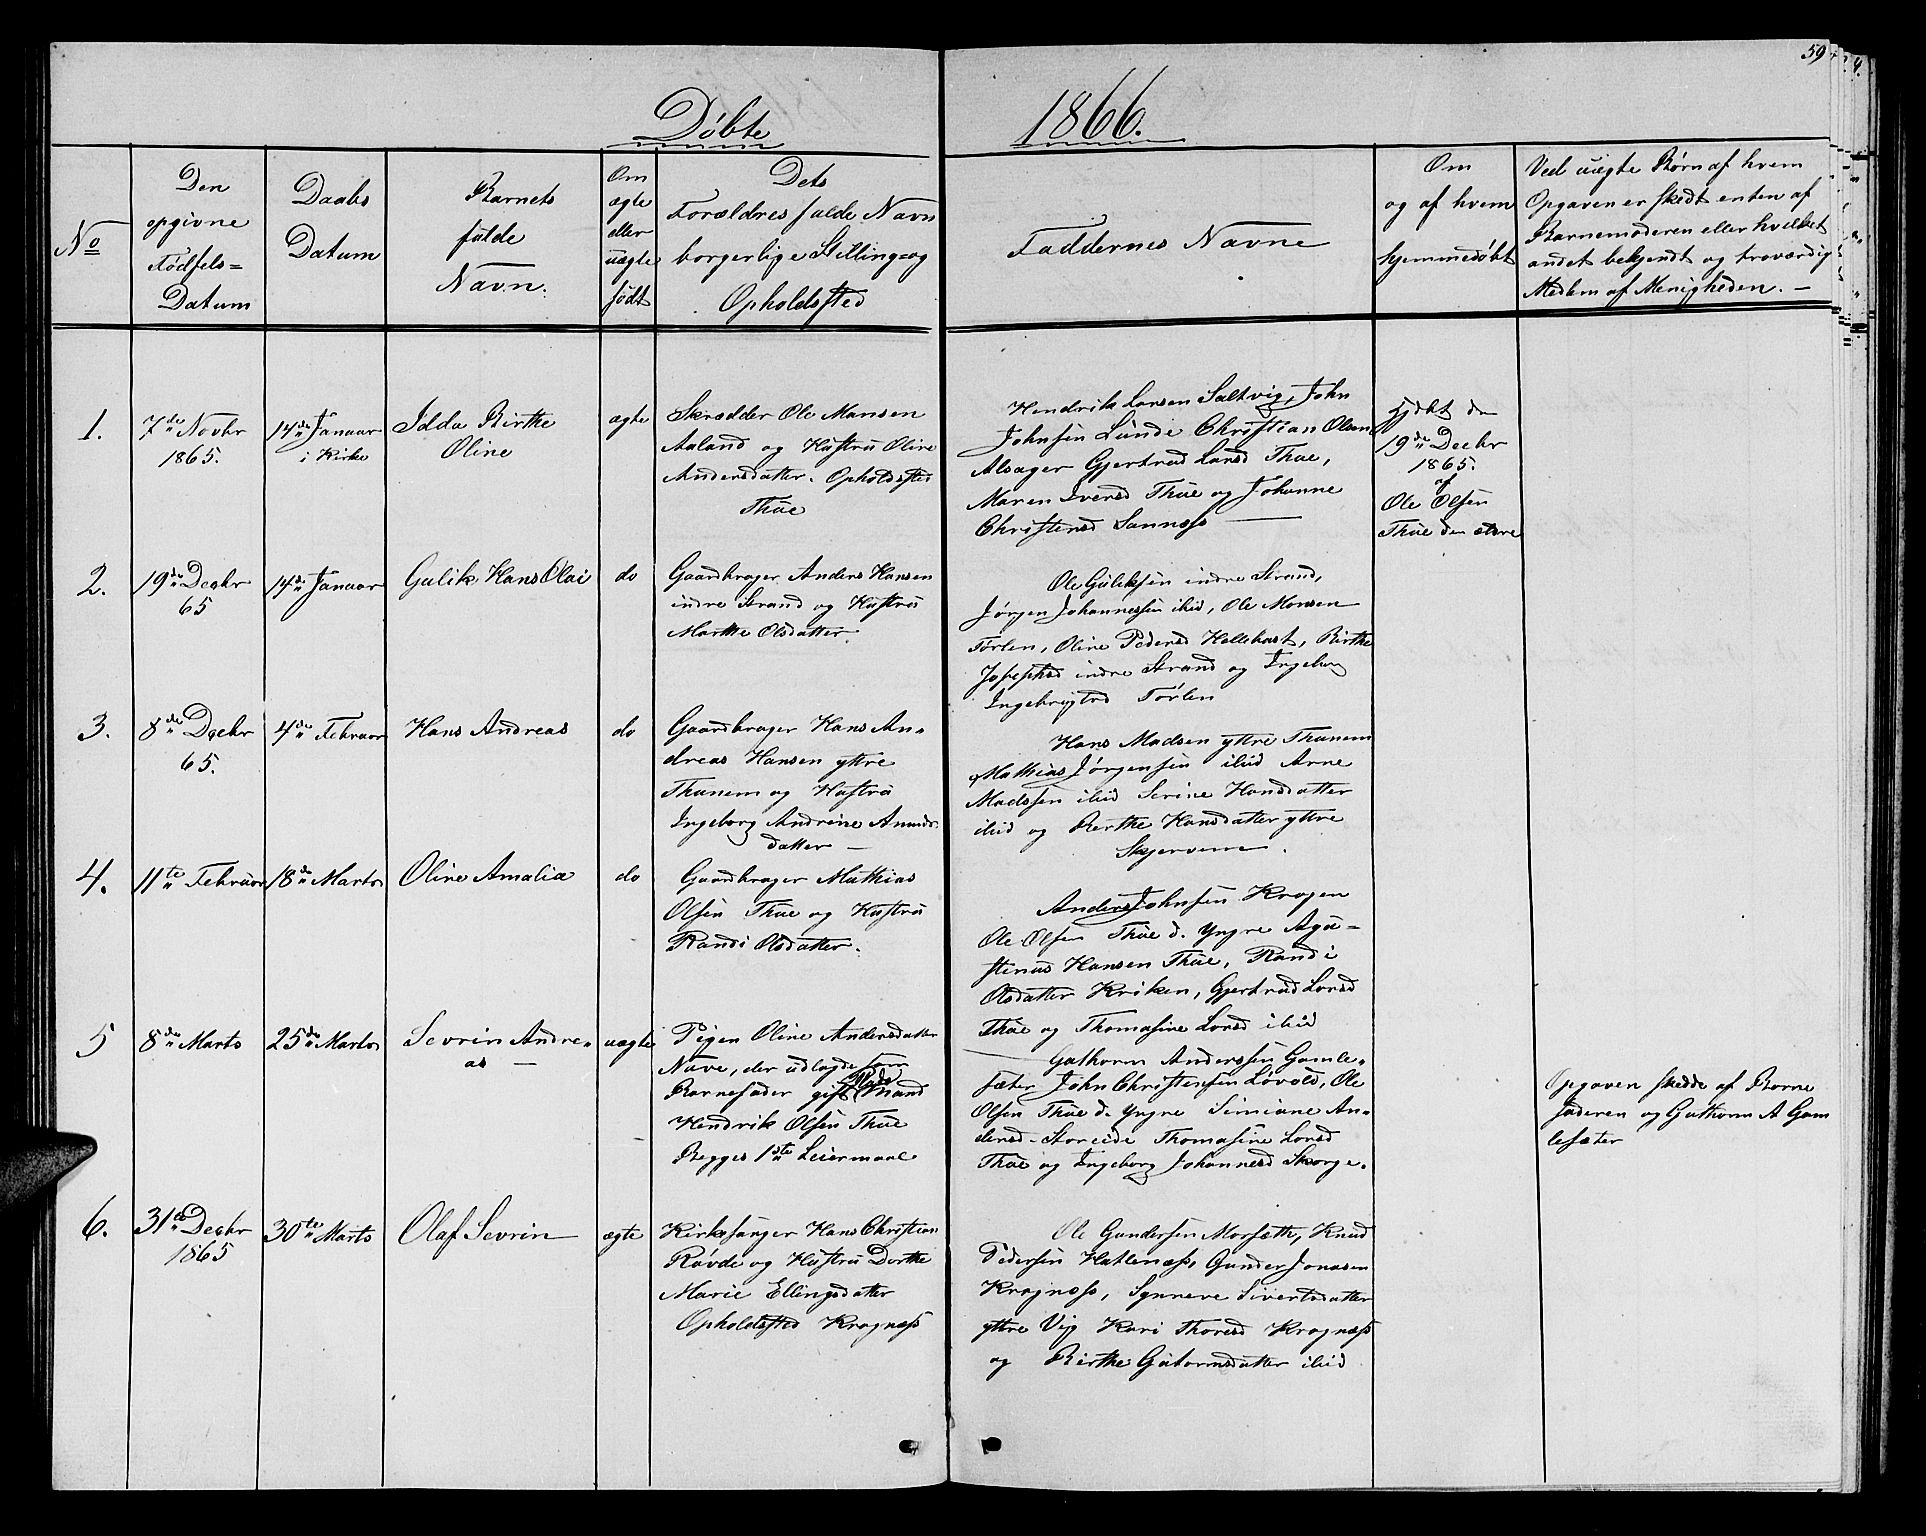 59
Döbte 1866.
No
Den
opgivne
Födsels-
Datum
Daabs
Datum
Barnets
fulde
Navn.
Om
ægte
eller
uægte
födt
Dets
Forældres fulde Navn
borgerlige Stilling og
Opholdssted
Faddernes Navne
Om
og af hvem
hjemmedöbt
Ved uægte Börn af hvem
Opgaven er skedt enten af
Barnemoderen eller hvilket
andet bekjendt og troværdig
Medlem af Menigheden. –
1.
7de Novbr
1865.
14de Januar
i Kirke
Idda Birthe
Oline
ægte
Skrædder Ole Monsen
Aaland og Hustru Oline
Andersdatter. Opholdssted
Thue
Hendrik Larsen Saltvig, John
Johnsen Lunde Christian Olsen
Alsager Gjertrud Larsd Thue,
Maren Iversd Thue og Johanne
Christensd Sannæss
Hjdöbt den
19de Decbr
1865.
af
Ole Olsen
Thue den ældre
2.
19de Decbr
65
14de Januar
Gulik Hans Olai
do
Gaardbruger Anders Hansen
indre Strand og Hustru
Marthe Olsdatter.
Ole Guliksen indre Strand,
Jörgen Johannessen ibid, Ole Monsen
Törlen, Oline Pedersd Hellebost, Birthe
Josephsd indre Strand og Ingeborg
Ingebrigtsd Törlen
3.
8de Decbr
65.
4de Februar
Hans Andreas
do
Gaardbruger Hans An-
dreas Hansen yttre
Thunem og Hustru
Ingeborg Andrine Amunds
datter –
Hans Madsen yttre Thunem
Mathias Jörgensen ibid Arne
Madssen ibid Serine Hansdatter
ibid og Berthe Hansdatter yttre
Skjervene.
4.
11te Februar
18de Marts
Oline Amalia
do
Gaardbruger Mathias
Olsen Thue og Hustru
Randi Olsdatter.
Anders Johnsen Krogen
Ole Olsen Thue d. yngre Agu-
stinus Hansen Thue, Randi
Olsdatter Kriken, Gjertrud Larsd
Thue og Thomasine Larsd ibid
5
8de Marts
25de Marts
Sevrin Andre-
as –
uægte
Pigen Oline Andersdatter
Nave, der udlagde som
Barnefader gift Mand
Hendrik Olsen Thue
Begges 1ste Leiermaal
Guthorm Anderssen Gamle-
sæter John Christensen Lövold, Ole
Olsen Thue d. yngre Simiane An-
dersd Storeide Thomasine Larsd
Thue og Ingeborg Johannesd Skorge.
Opgaven skedde af Barne
faderen og Guthorm A Gam
lesæter
6.
31te Decbr
1865
30te Marts
Olaf Sevrin
ægte
Kirkesanger Hans Christian
Rövde og Hustru Dorthe
Marie Ellingsdatter
Opholdssted Kragnæss
Ole Gundersen Morsæth, Knud
Pedersen Hatlenæss, Gunder Jonasen
Kragnæss, Synneve Sivertsdatter
yttre Vig Kari Thoresd Kragnæss
og Birthe Gutormsdatter ibid